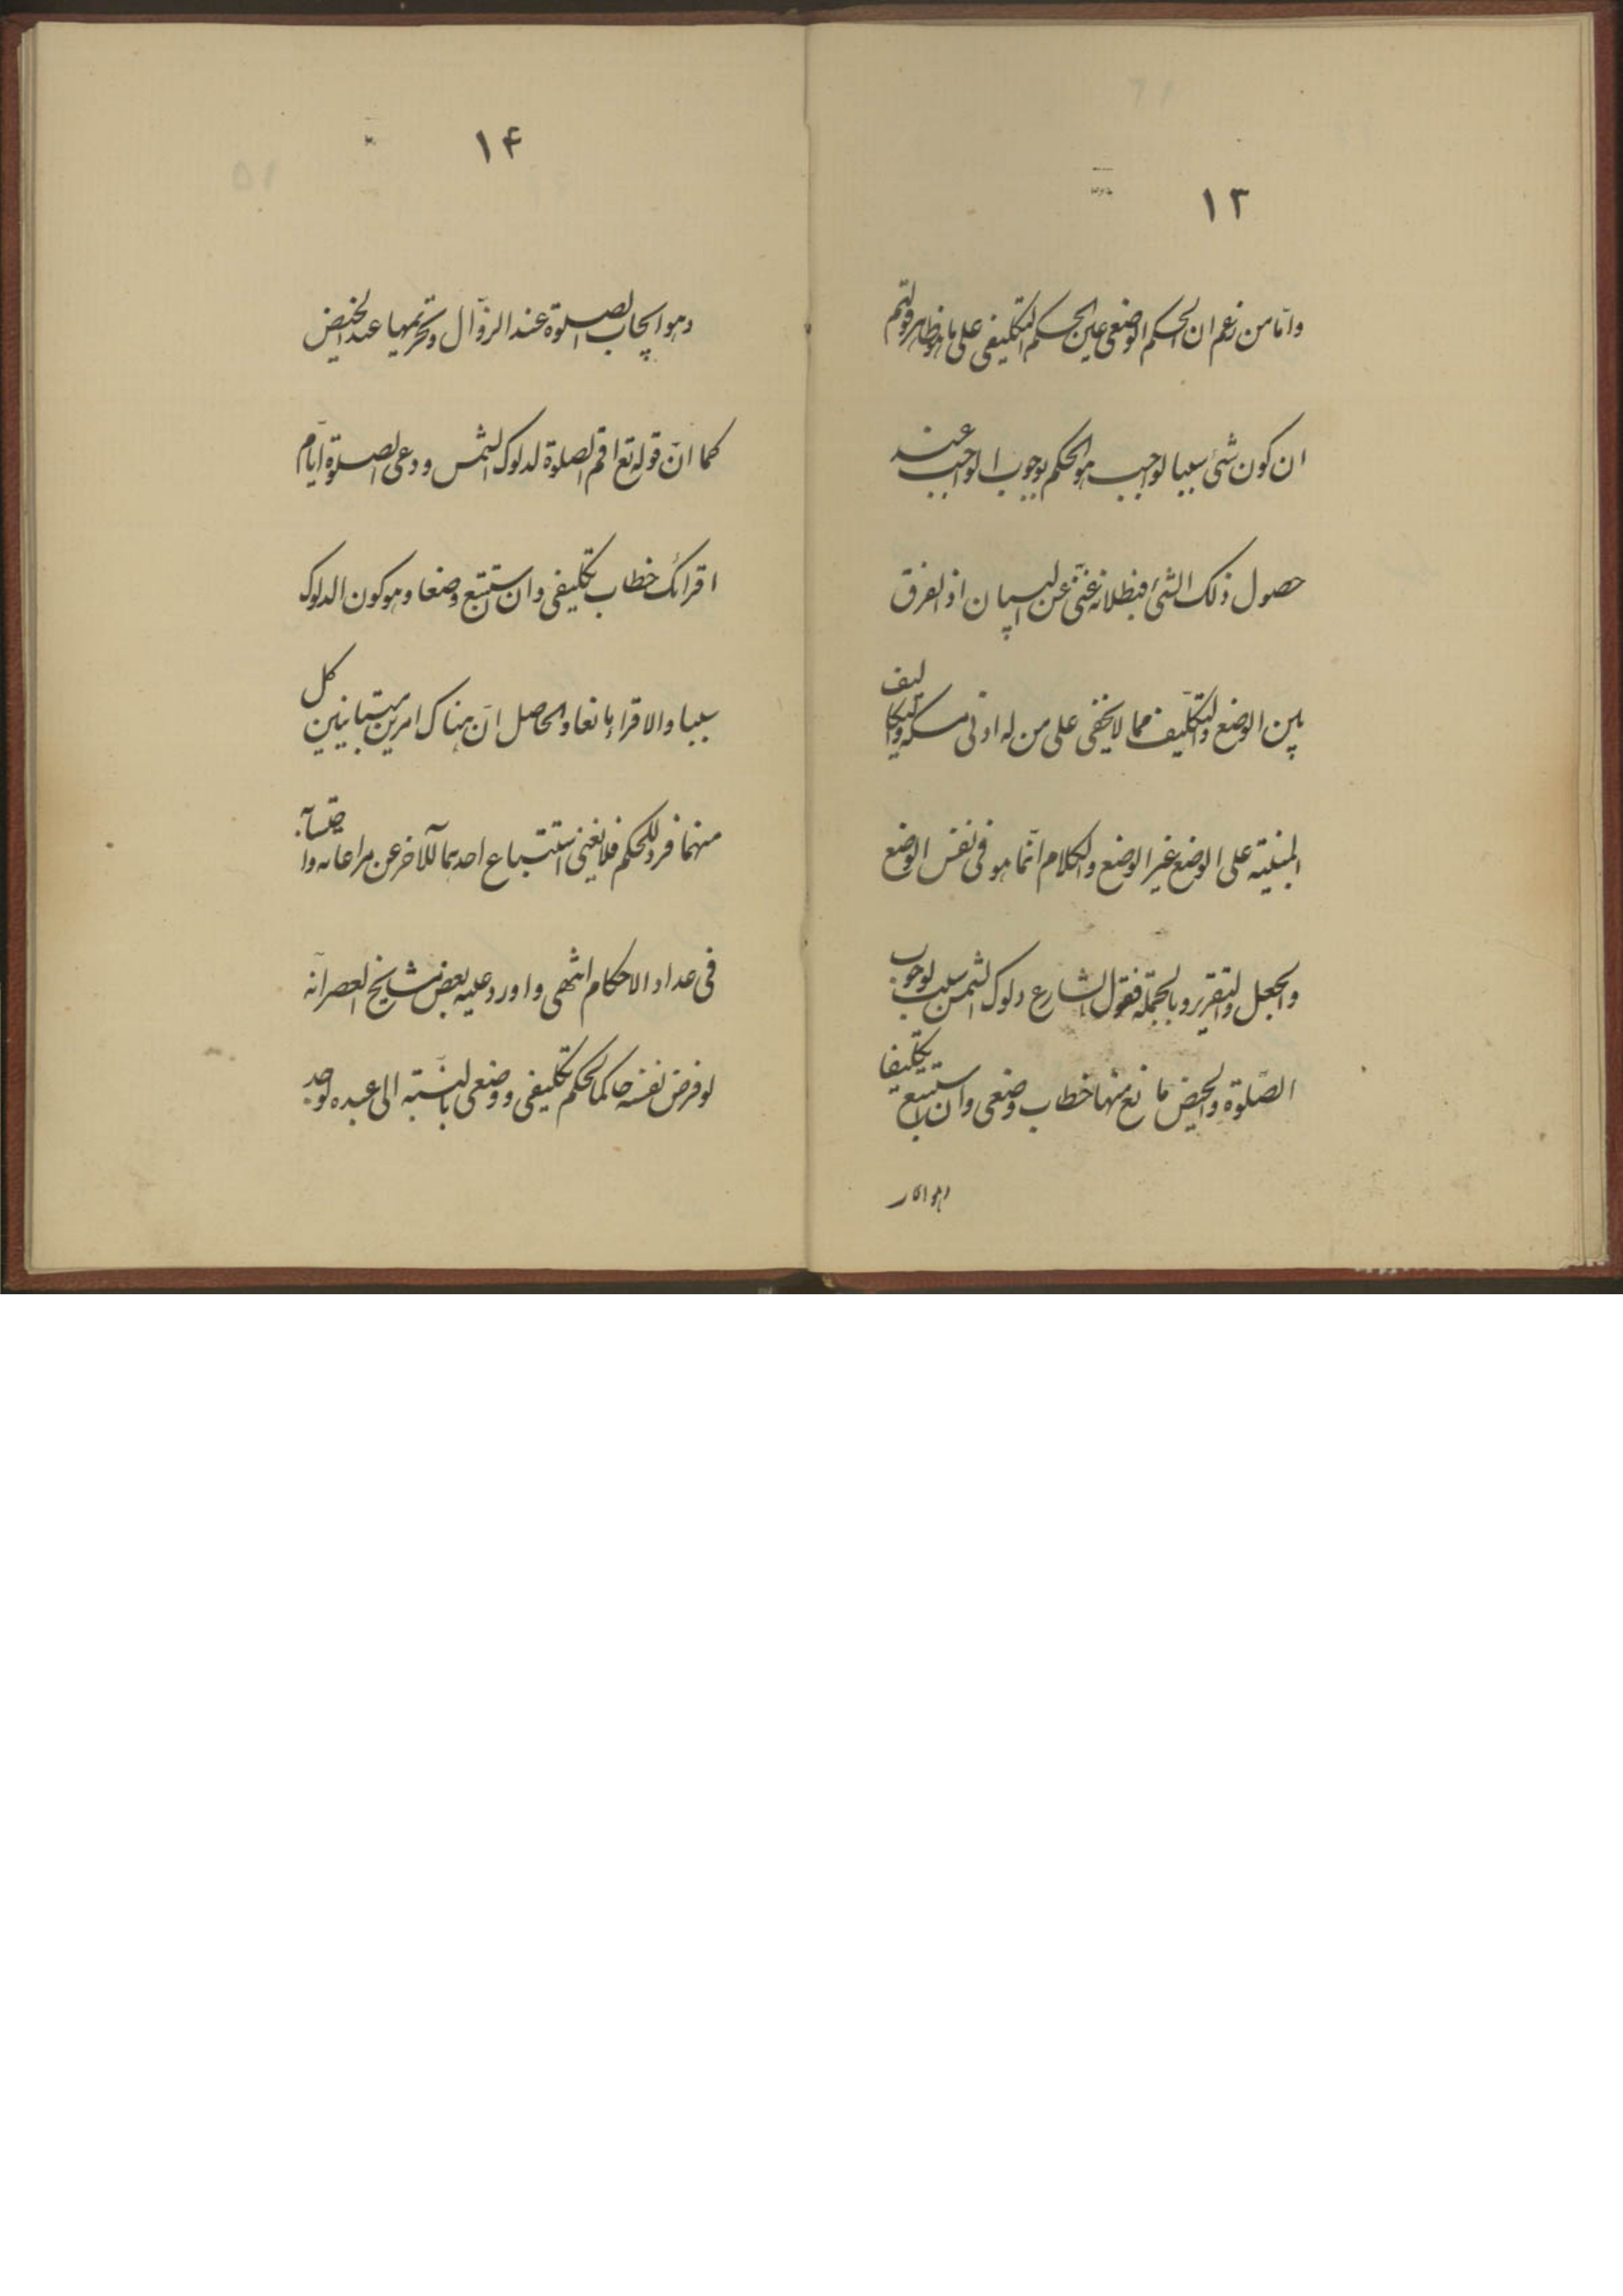 ١٣
وامّا من زعم ان الحكم الوضعى عين الحكم التكليفى على ما هو ظاهر قولهم
ان كون شئ سببا لواجب هو الحكم بوجوب الواجب عند
حصول ذلك الشئ فبطلانه غنىّ عن البيان اذ الفرق
بين الوضع والتكليف مما لا يخفى على من له ادنى مسكة والتكاليف
المبنيّة على الوضع غير الوضع والكلام انّما هو فى نفس الوضع
والجعل والتقرير وبالجملة فقول الشارع دلوك الشمس سبب لوجوب
الصّلوة والحيض مانع منها خطاب وضعى وان استتبع تكليفا
وهو ايجاب
١۴
وهو ايجاب الصلوة عند الزوّال وتحريمها عند الحيض
كما انّ قوله تع اقم الصلوة لدلوك الشمس ودعى الصلوة ايّام
اقرائك خطاب تكليفى وان استتبع وضعا وهو كون الدلوك
سببا والاقراء مانعا والحاصل انّ هناك امرين متباينين كل
منهما فرد للحكم فلا يغنى استتباع احدهما للآخر عن مراعاته واحتسابه
فى عداد الاحكام انتهى واورد عليه بعض مشايخ العصر انّه
لو فرض نفسه حاكما لحكم تكليفى ووضعى بالنّسبة الى عبده لوجد